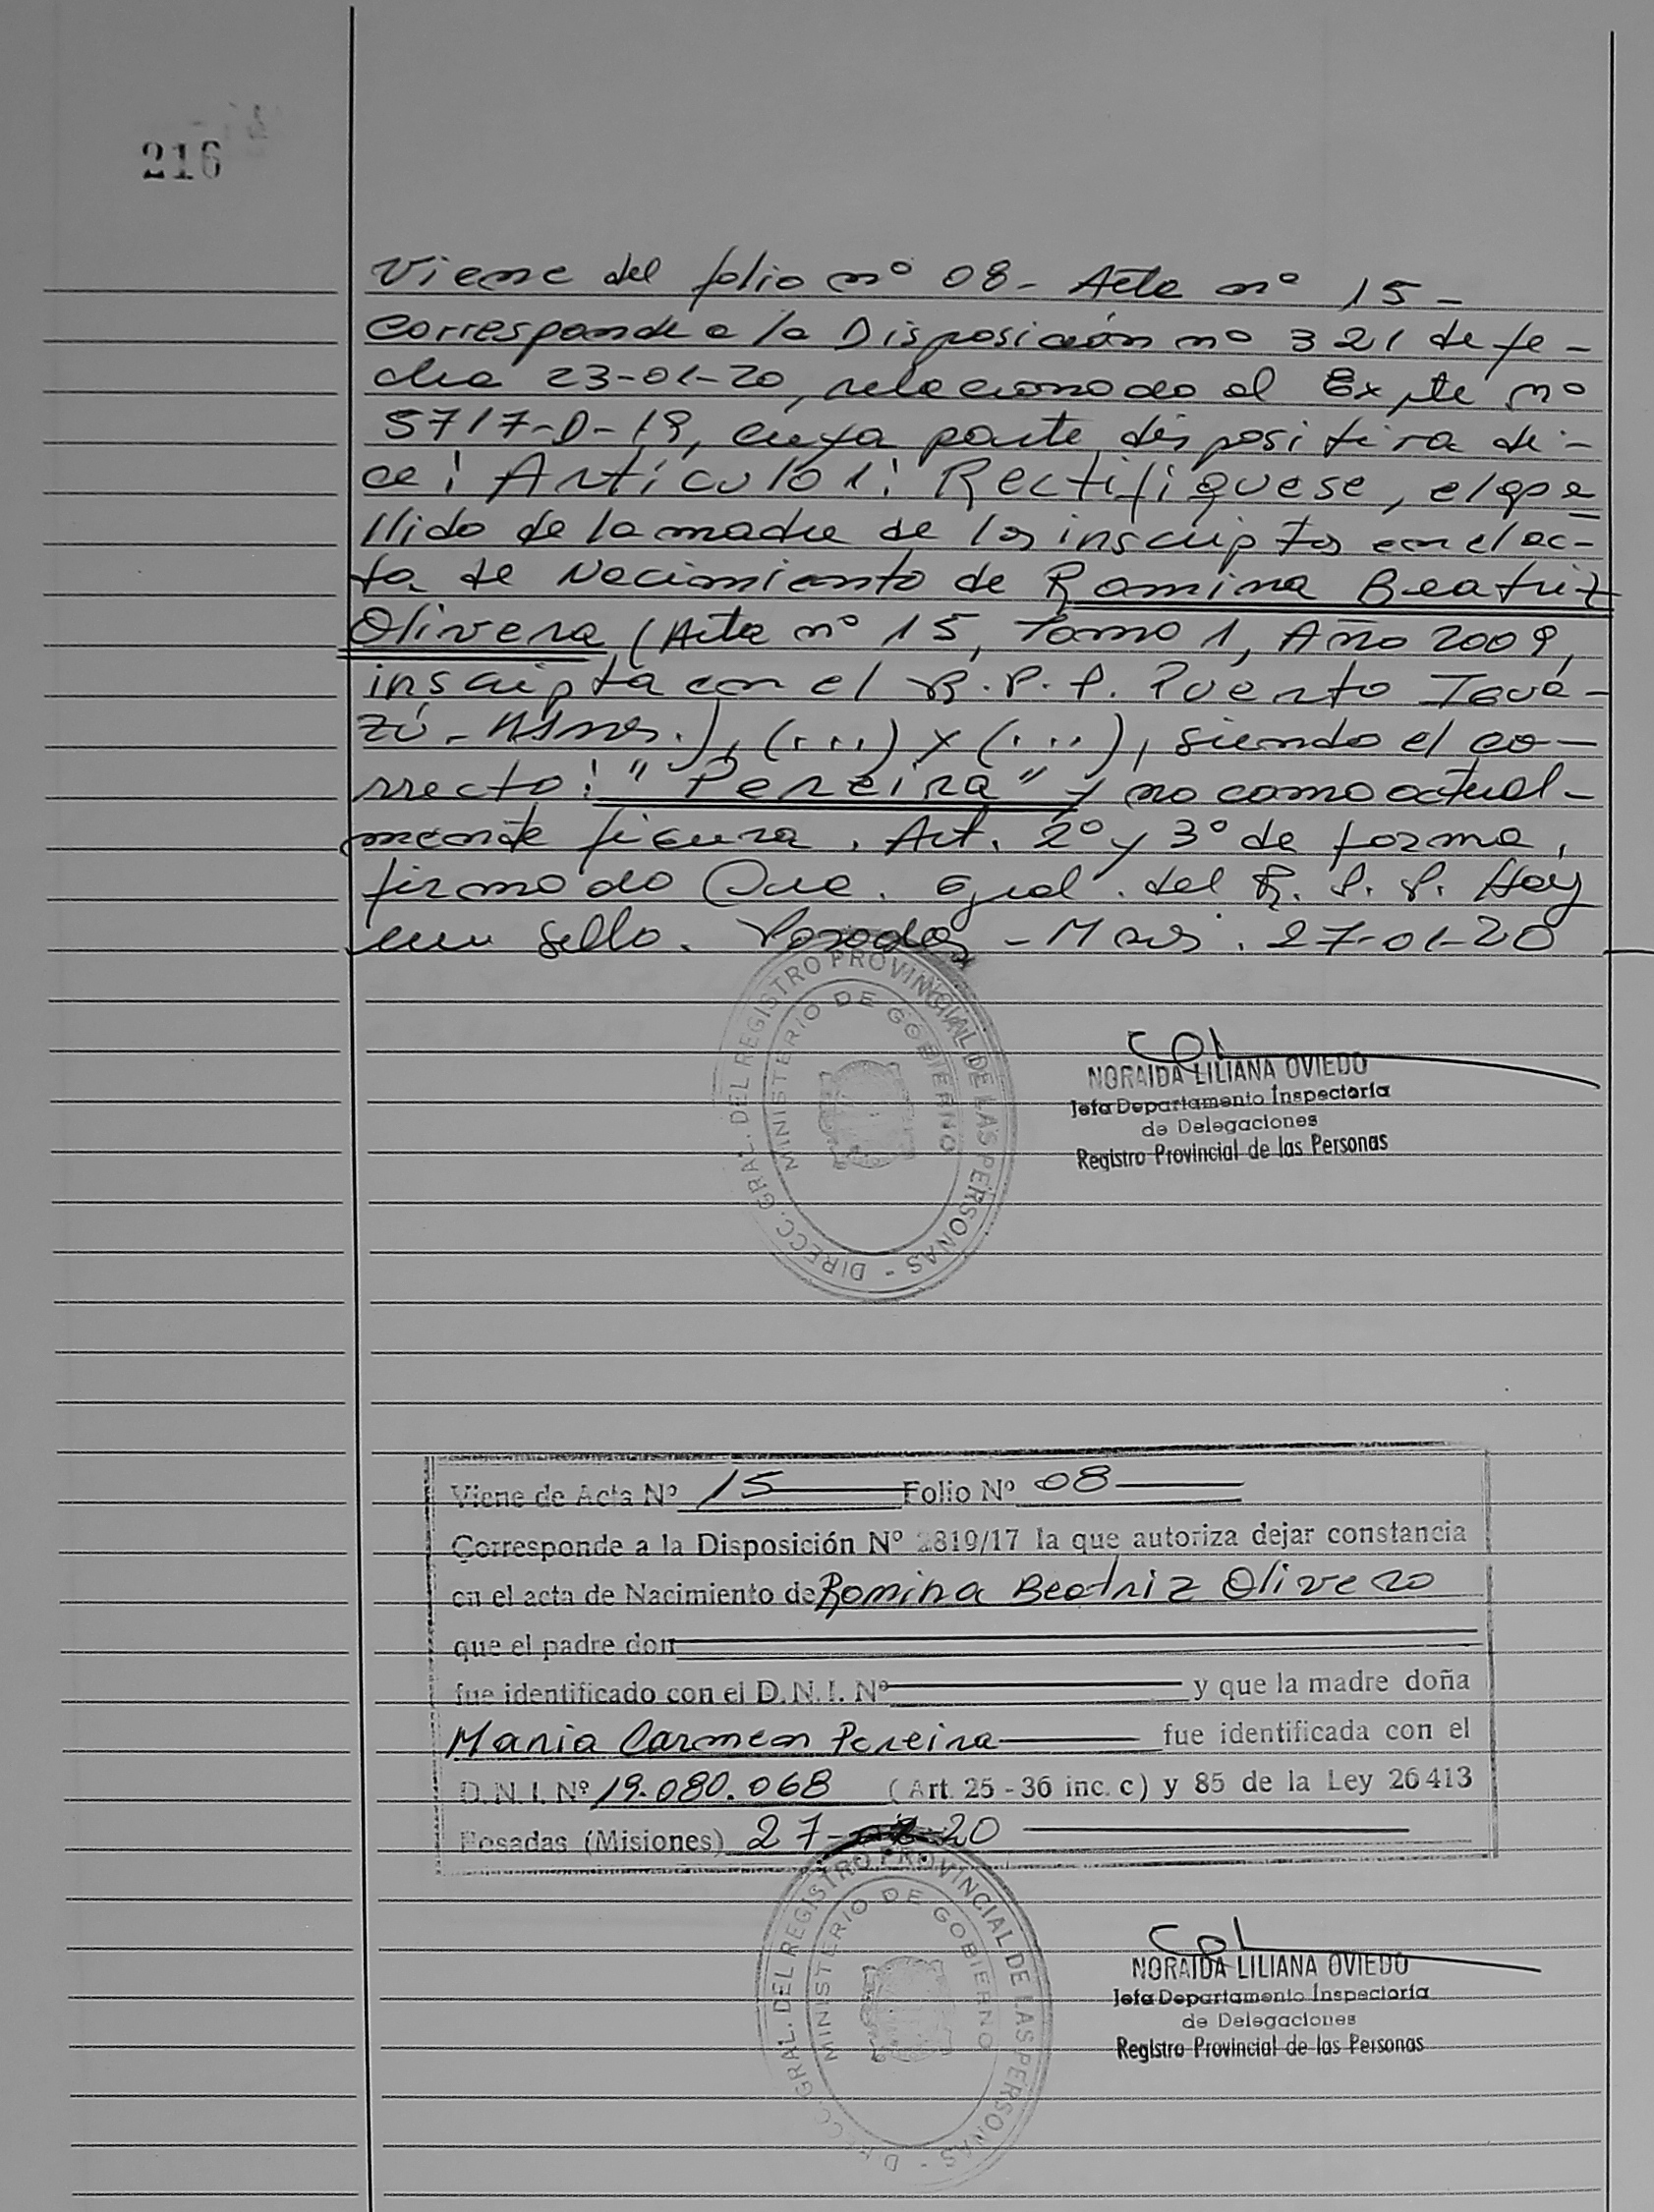 216
Viene del folio nº 08 - Acta nº 15 -
Corresponde a la Disposición nº 321 de fe-
cha 23-01-20, relacionado al Expte nº
5717-D-19, cuya parte dispositiva di-
ce: Artículo 1: Rectifiquese, el ape
llido de la madre de los inscriptos en el ac-
ta de Nacimiento de Romina Beatriz
Olivera (Acta nº 15, Tomo 1, Año 2009,
inscripta en el R.P.P. Puerto Igua-
zú - Mnes.), (...) y (...), siendo el co-
rrecto: "Pereira" y no como actual-
mente figura. Art. 2º y 3º de forma,
firmado Gral. del R.P.P. Hay
un sello. Posadas - Mnes. 27-01-20
DIRECC. GRAL. DEL REGISTRO PROVINCIAL DE LAS PERSONAS -
MINISTERIO DE GOBIERNO
NORAIDA LILIANA OVIEDO
Jefa Departamento Inspectoría
de Delegaciones
Registro Provincial de las Personas
Viene de Acta Nº 15 Folio Nº 08
Corresponde a la Disposición Nº 2819/17 la que autoriza dejar constancia
en el acta de Nacimiento de Romina Beatriz Olivera
que el padre don
fue identificado con el D.N.I. Nº y que la madre doña
Maria Carmen Pereira fue identificada con el
D.N.I. Nº 19.080.068 (Art. 25 - 36 inc. c) y 85 de la Ley 26413
Posadas (Misiones) 27- -20
DIRECC. GRAL. DEL REGISTRO PROVINCIAL DE LAS PERSONAS -
MINISTERIO DE GOBIERNO
NORAIDA LILIANA OVIEDO
Jefa Departamento Inspectoría
de Delegaciones
Registro Provincial de las Personas